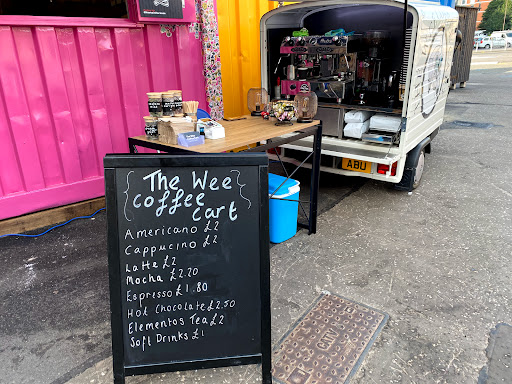 The Wee
coffee
cart
Americano £2
Cappucino £2
Latte £2
Mocha £2.20
Espresso £1.80
Hot Chocolate £2.50
Elementos Tea £2
Soft Drinks £1
ABU